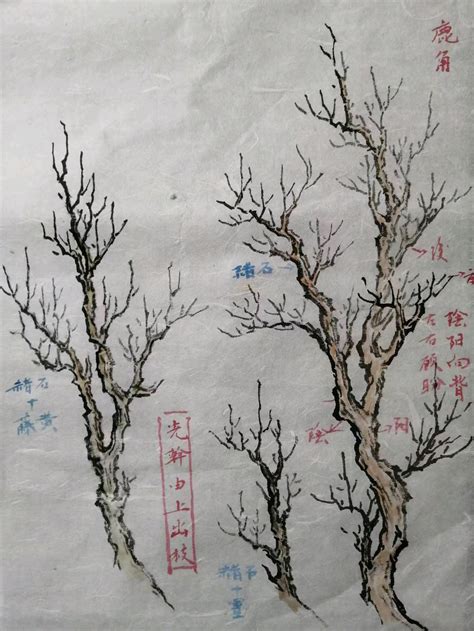 鹿角
陰阳向背
左右顾盼
赭石
陰
阳
赭石+藤黄
先幹由上出枝
赭石+墨